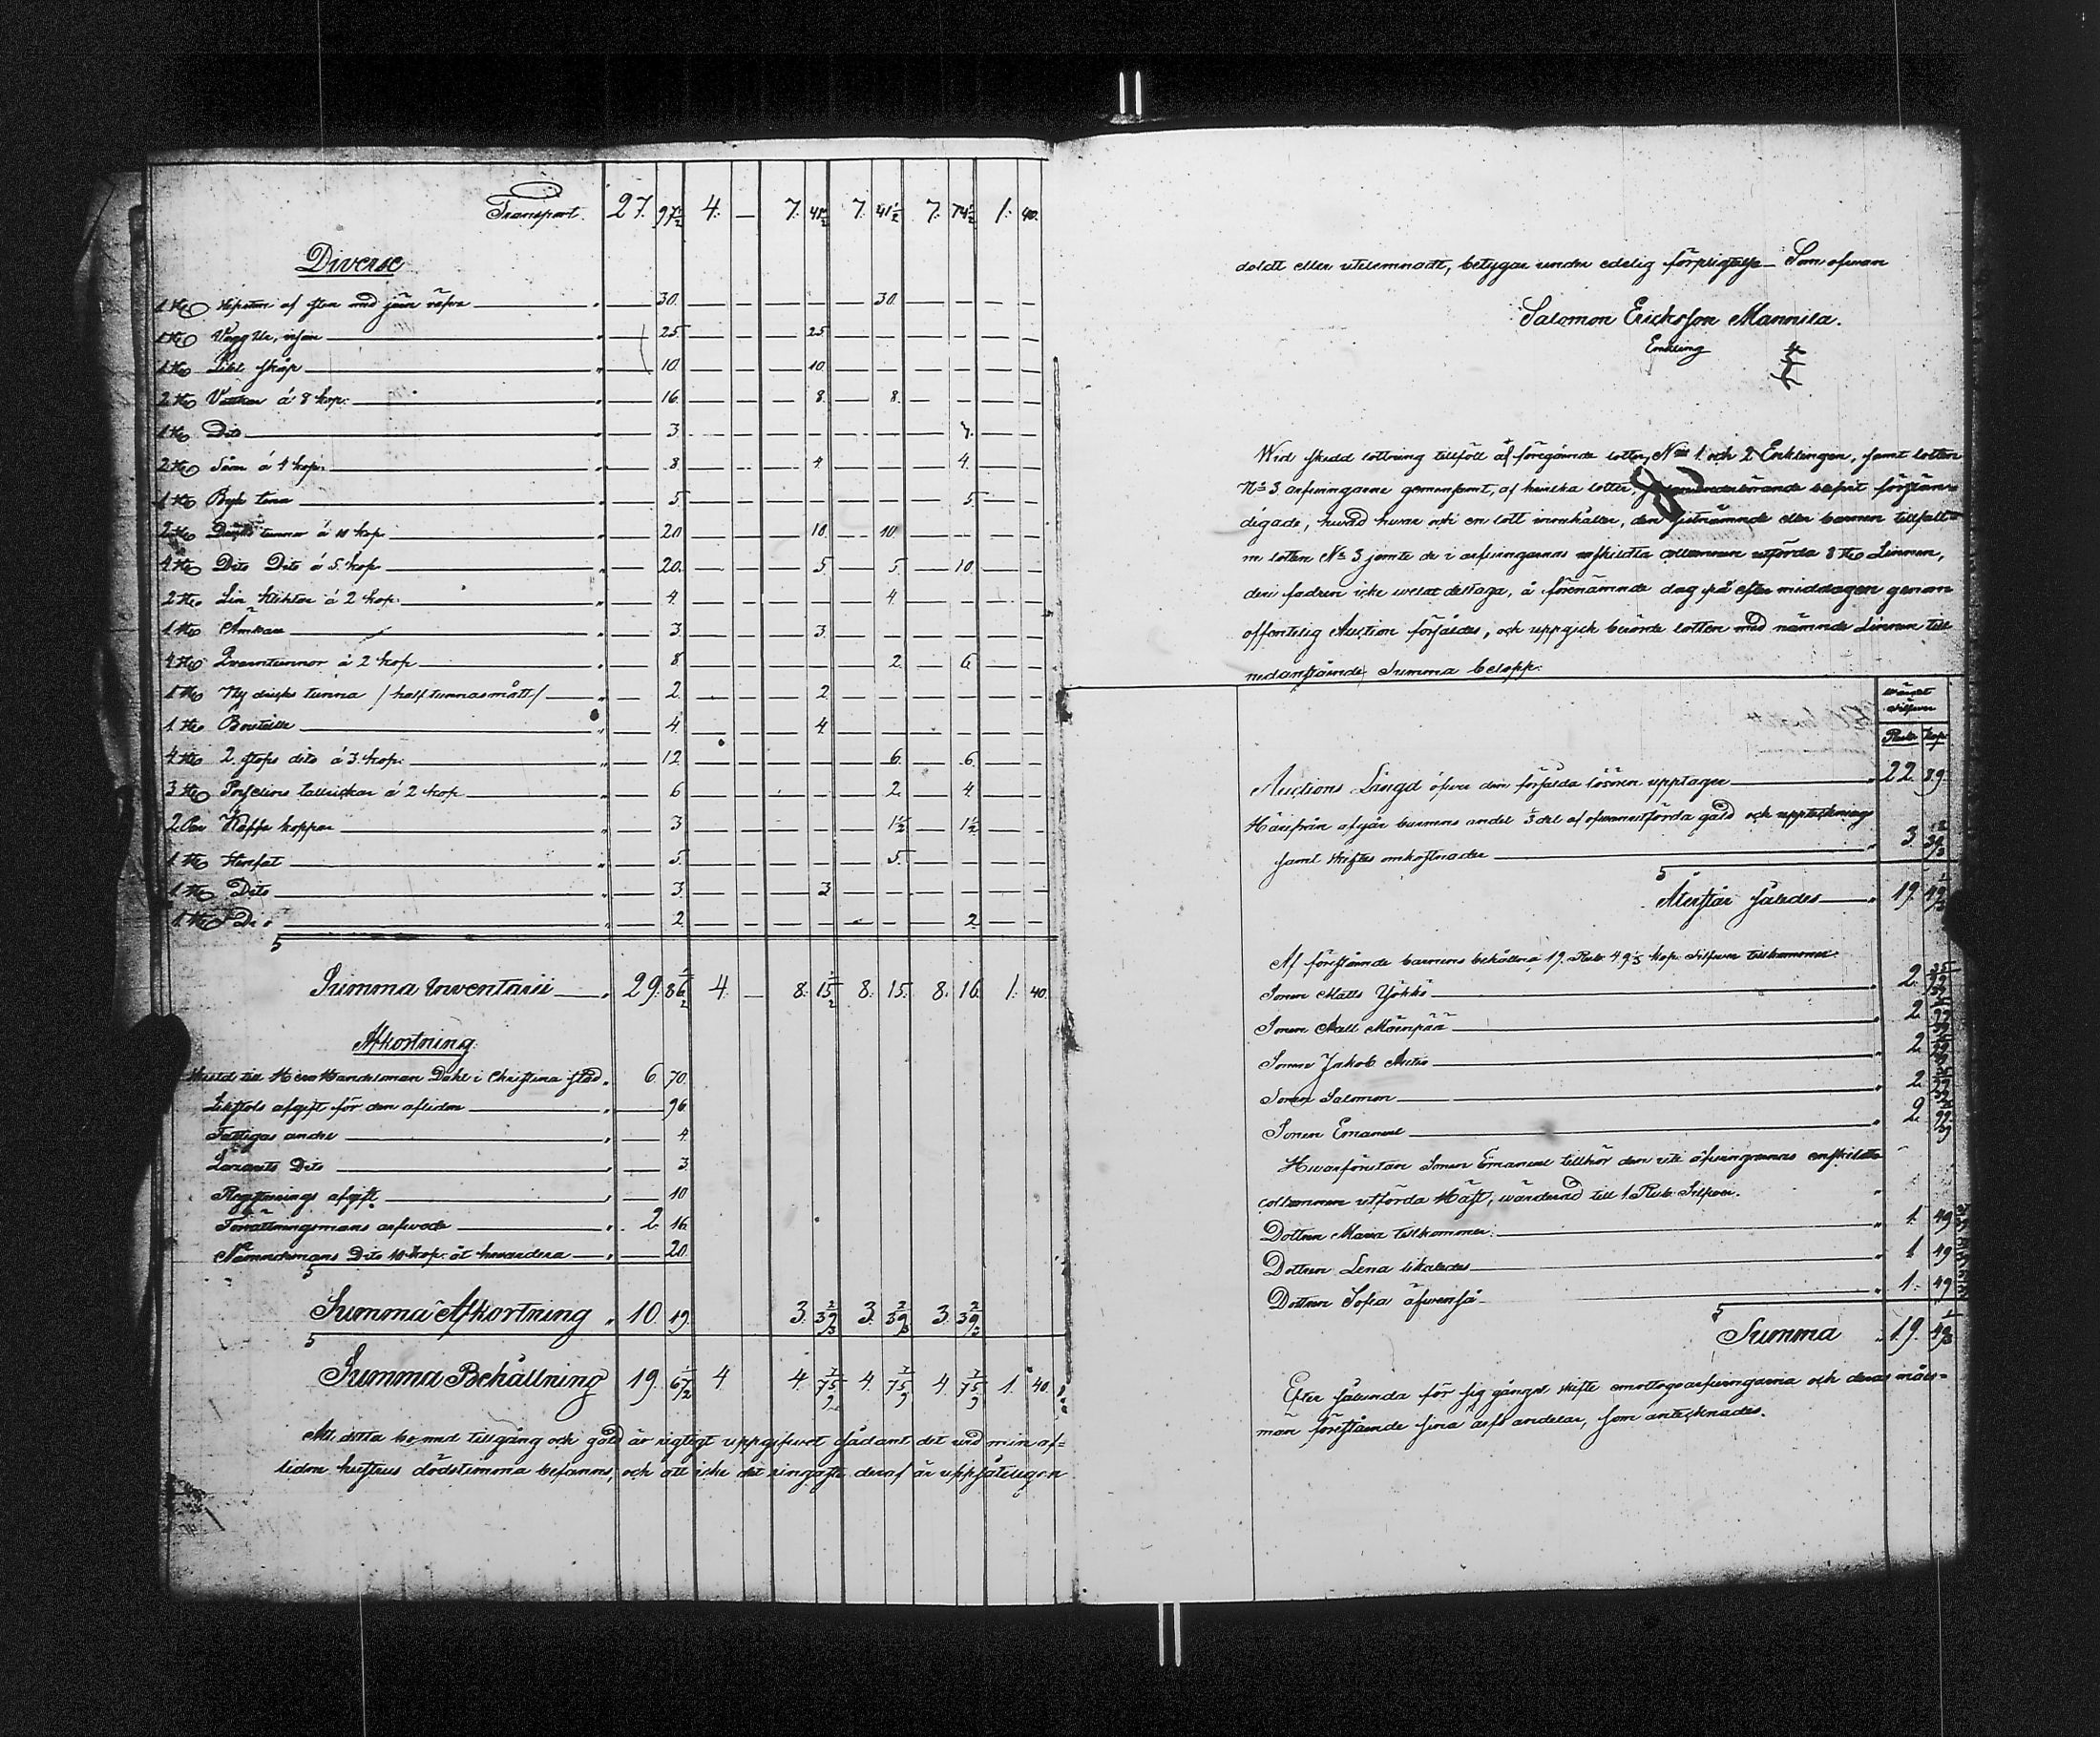 Transport. 27. 97½ 4. — 7. 41½ 7. 41½ 7. 74½ 1. 40.
Diverse
1 st. af sten med jern — 30. — 30.
1 st. Vägg Ur, — 25 — 25
1 st. Litet skåp — 10 — 10
2 st. á 8 kop. — 16. — 8. — 8.
1 st. Dito — 3. — 3.
2 st. Såar á 4 kop. — 8. — 4. — 4.
1 st. Byk tina — 5. — 5.
2 st. tunnor á 10 kop. — 20 — 10. — 10.
4 st. Dito Dito á 5. kop — 20. — 5. — 5. — 10.
2 st. Lin häklor á 2 kop. — 4. — 4.
1 st. Ämbare — 3. — 3.
4 st. tunnor á 2 kop — 8 — 2. — 6.
1 st. Ny tunna /half tunnas mått/ — 2. — 2.
1 st. Bouteille — 4. — 4.
4 st. 2. stops dito á 3. kop. — 12 — 6. — 6.
3 st. Porselins tallrickar á 2 kop — 6 — 2. — 4.
2 Par Kaffe koppar — 3 — 1½ — 1½
1 st. Stenfat — 5. — 5.
1 st. Dito — 3. — 3
1 st. Dito — 2. — 2.
Summa Inventarii — 29. 86½ 4. — 8. 15½ 8. 15. 8. 16. 1. 40
Afkortning.
Skuld till Herr Handelsman Dahl i Christina stad. 6. 70.
Likstols afgift för den aflidna — 96.
Fattigas andel — 4
Lazaretts Dito — 3
Registrerings afgift — 10
Förrättningsmans arfvode — 2. 16.
Nämndemans Dito 10 kop. åt hvardera — 20.
Summa Afkortning 10. 19. 3. 39⅔ 3. 39⅔ 3. 39⅔
Summa Behållning 19. 67½ 4 4. 75 4. 75 4. 75 1. 40.
Att detta bo med tillgång och gäld är rigtigt uppgifvet sådant det vid min af=
lidna hustrus dödstimma befanns, och att icke det ringaste deraf är uppsåteligen
doldt eller utelemnadt, betygar under edelig förpligtelse Som ofvan
Salomon Ericksson Mannila.
Enkling
Wid skedd lottning tillföll af föregående lotter, N:is 1 och 2 Enklingen, samt lotten
N:o 3. arfvingarne gemensamt, af hvilka lotter, förstän=
digade, hvad hvar och en lott innehåller, den sistnämnde eller barnen tillfall=
ne lotten N:o 3 jemte de i arfvingarnas enskildta collumnen utförda 8 st. Linnen,
deri fadren icke velat deltaga, å förenämnde dag på efter middagen genom
offentelig Auction försåldes, och uppgick berörde lotten med nämnde Linnen till
nedanstående Summa belopp.
Silfver
Rub. kop.
Auctions Längd öfver den försålda lösören upptager — 22. 89.
Härifrån afgår barnens andel ⅓ del af ofvannutförda gäld och upptecknings
samt skiftes omkostnader — 3. 39⅔
Återstår således — 19. 49⅓
Af förestående barnens behållna 19. Rub. 49⅓ kop. Silfver tillkommer.
Sonen Matts — 2.
Sonen — 2
Sonen Jakob — 2.
Sonen Salomon — 2.
Sonen Emanuel — 2.
Hvarförutan Sonen Emanuel tillhör den uti arfvingarnas enskildta
collumnen utförda Häst, värderad till 1. Rub. Silfver.
Dottren Maria tillkommer. — 1. 49
Dottren Lena likaledes — 1 49
Dottren Sofia äfvenså — 1. 49
Summa 19. 49⅓
Efter sålunda för sig gånget skifte emottogo arfvingarna och deras måls=
män förestående sina arfs andelar, som antecknades.